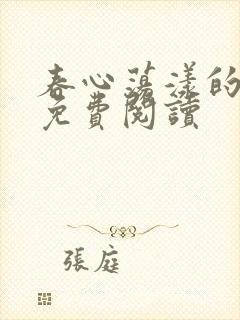 春心蕩漾的
免費閱讀
張庭